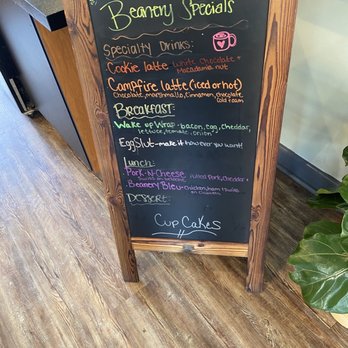 Beanery Specials
Specialty Drinks:
Cookie latte - White Chocolate +
Macadamia nut
Campfire latte (iced or hot)
Chocolate, marshmallo, Cinnamon, chocolate
Cold foam
Breakfast:
Wake up Wrap - bacon, Egg, Cheddar,
lettuce, tomato, onion
EggSlut - make it however you want!
Lunch:
Pork-N-Cheese - Pulled Pork, Cheddar +
Beanery Bleu - chicken, ham + Swiss
Dessert:
Cup Cakes